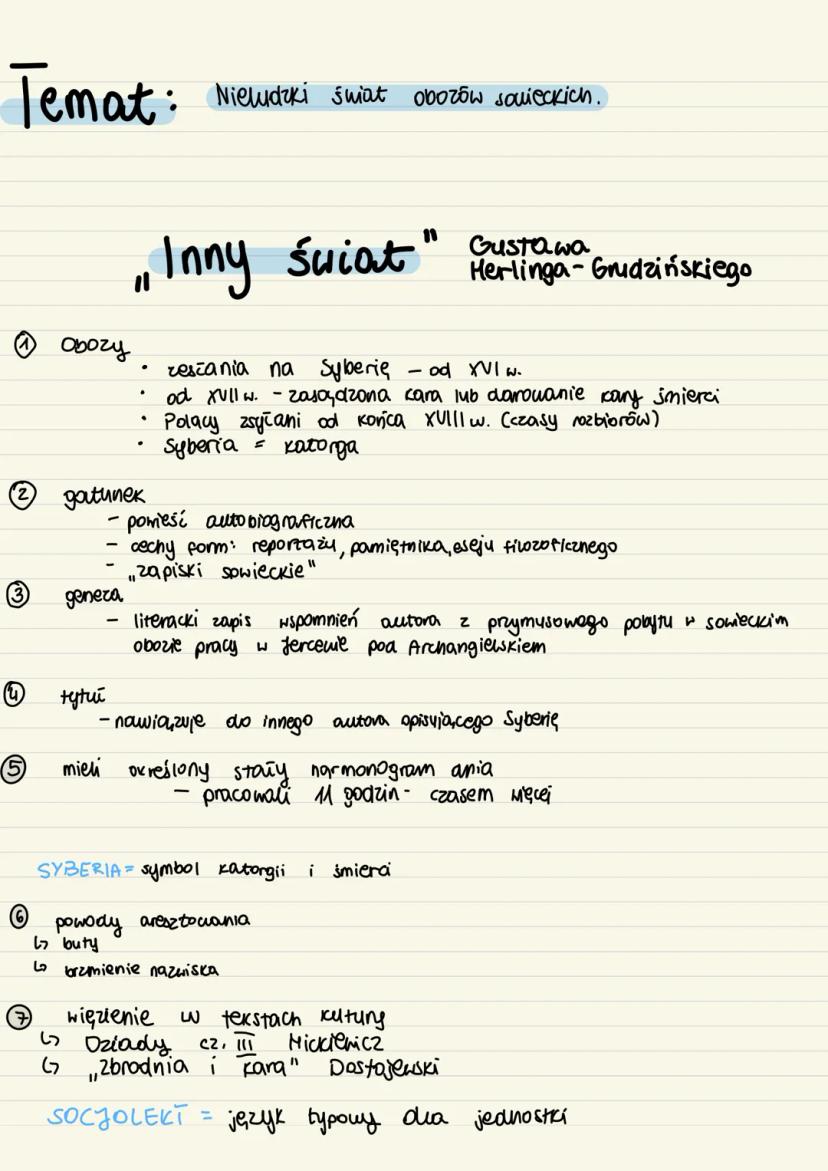 Temat: Nieludzki świat obozów sowieckich.
„Inny świat" Gustawa
Herlinga-Grudzińskiego
① Obozy
• zesłania na Syberię – od XVI w.
• od XVII w. – zasądzona kara lub darowanie kary śmierci
• Polacy zsyłani od końca XVIII w. (czasy rozbiorów)
• Syberia = katorga
② gatunek
– powieść autobiograficzna
– cechy form: reportażu, pamiętnika, eseju filozoficznego
– „zapiski sowieckie"
③ geneza
– literacki zapis wspomnień autora z przymusowego pobytu w sowieckim
obozie pracy w Jercewie pod Archangielskiem
④ tytuł
– nawiązuje do innego autora opisującego Syberię
⑤ mieli określony stały harmonogram dnia
– pracowali 11 godzin - czasem więcej
SYBERIA = symbol katorgii i śmierci
⑥ powody aresztowania
↳ buty
↳ brzmienie nazwiska
⑦ więzienie w tekstach kultury
↳ Dziady cz. III Mickiewicz
↳ „zbrodnia i kara" Dostojewski
SOCJOLEKT = język typowy dla jednostki